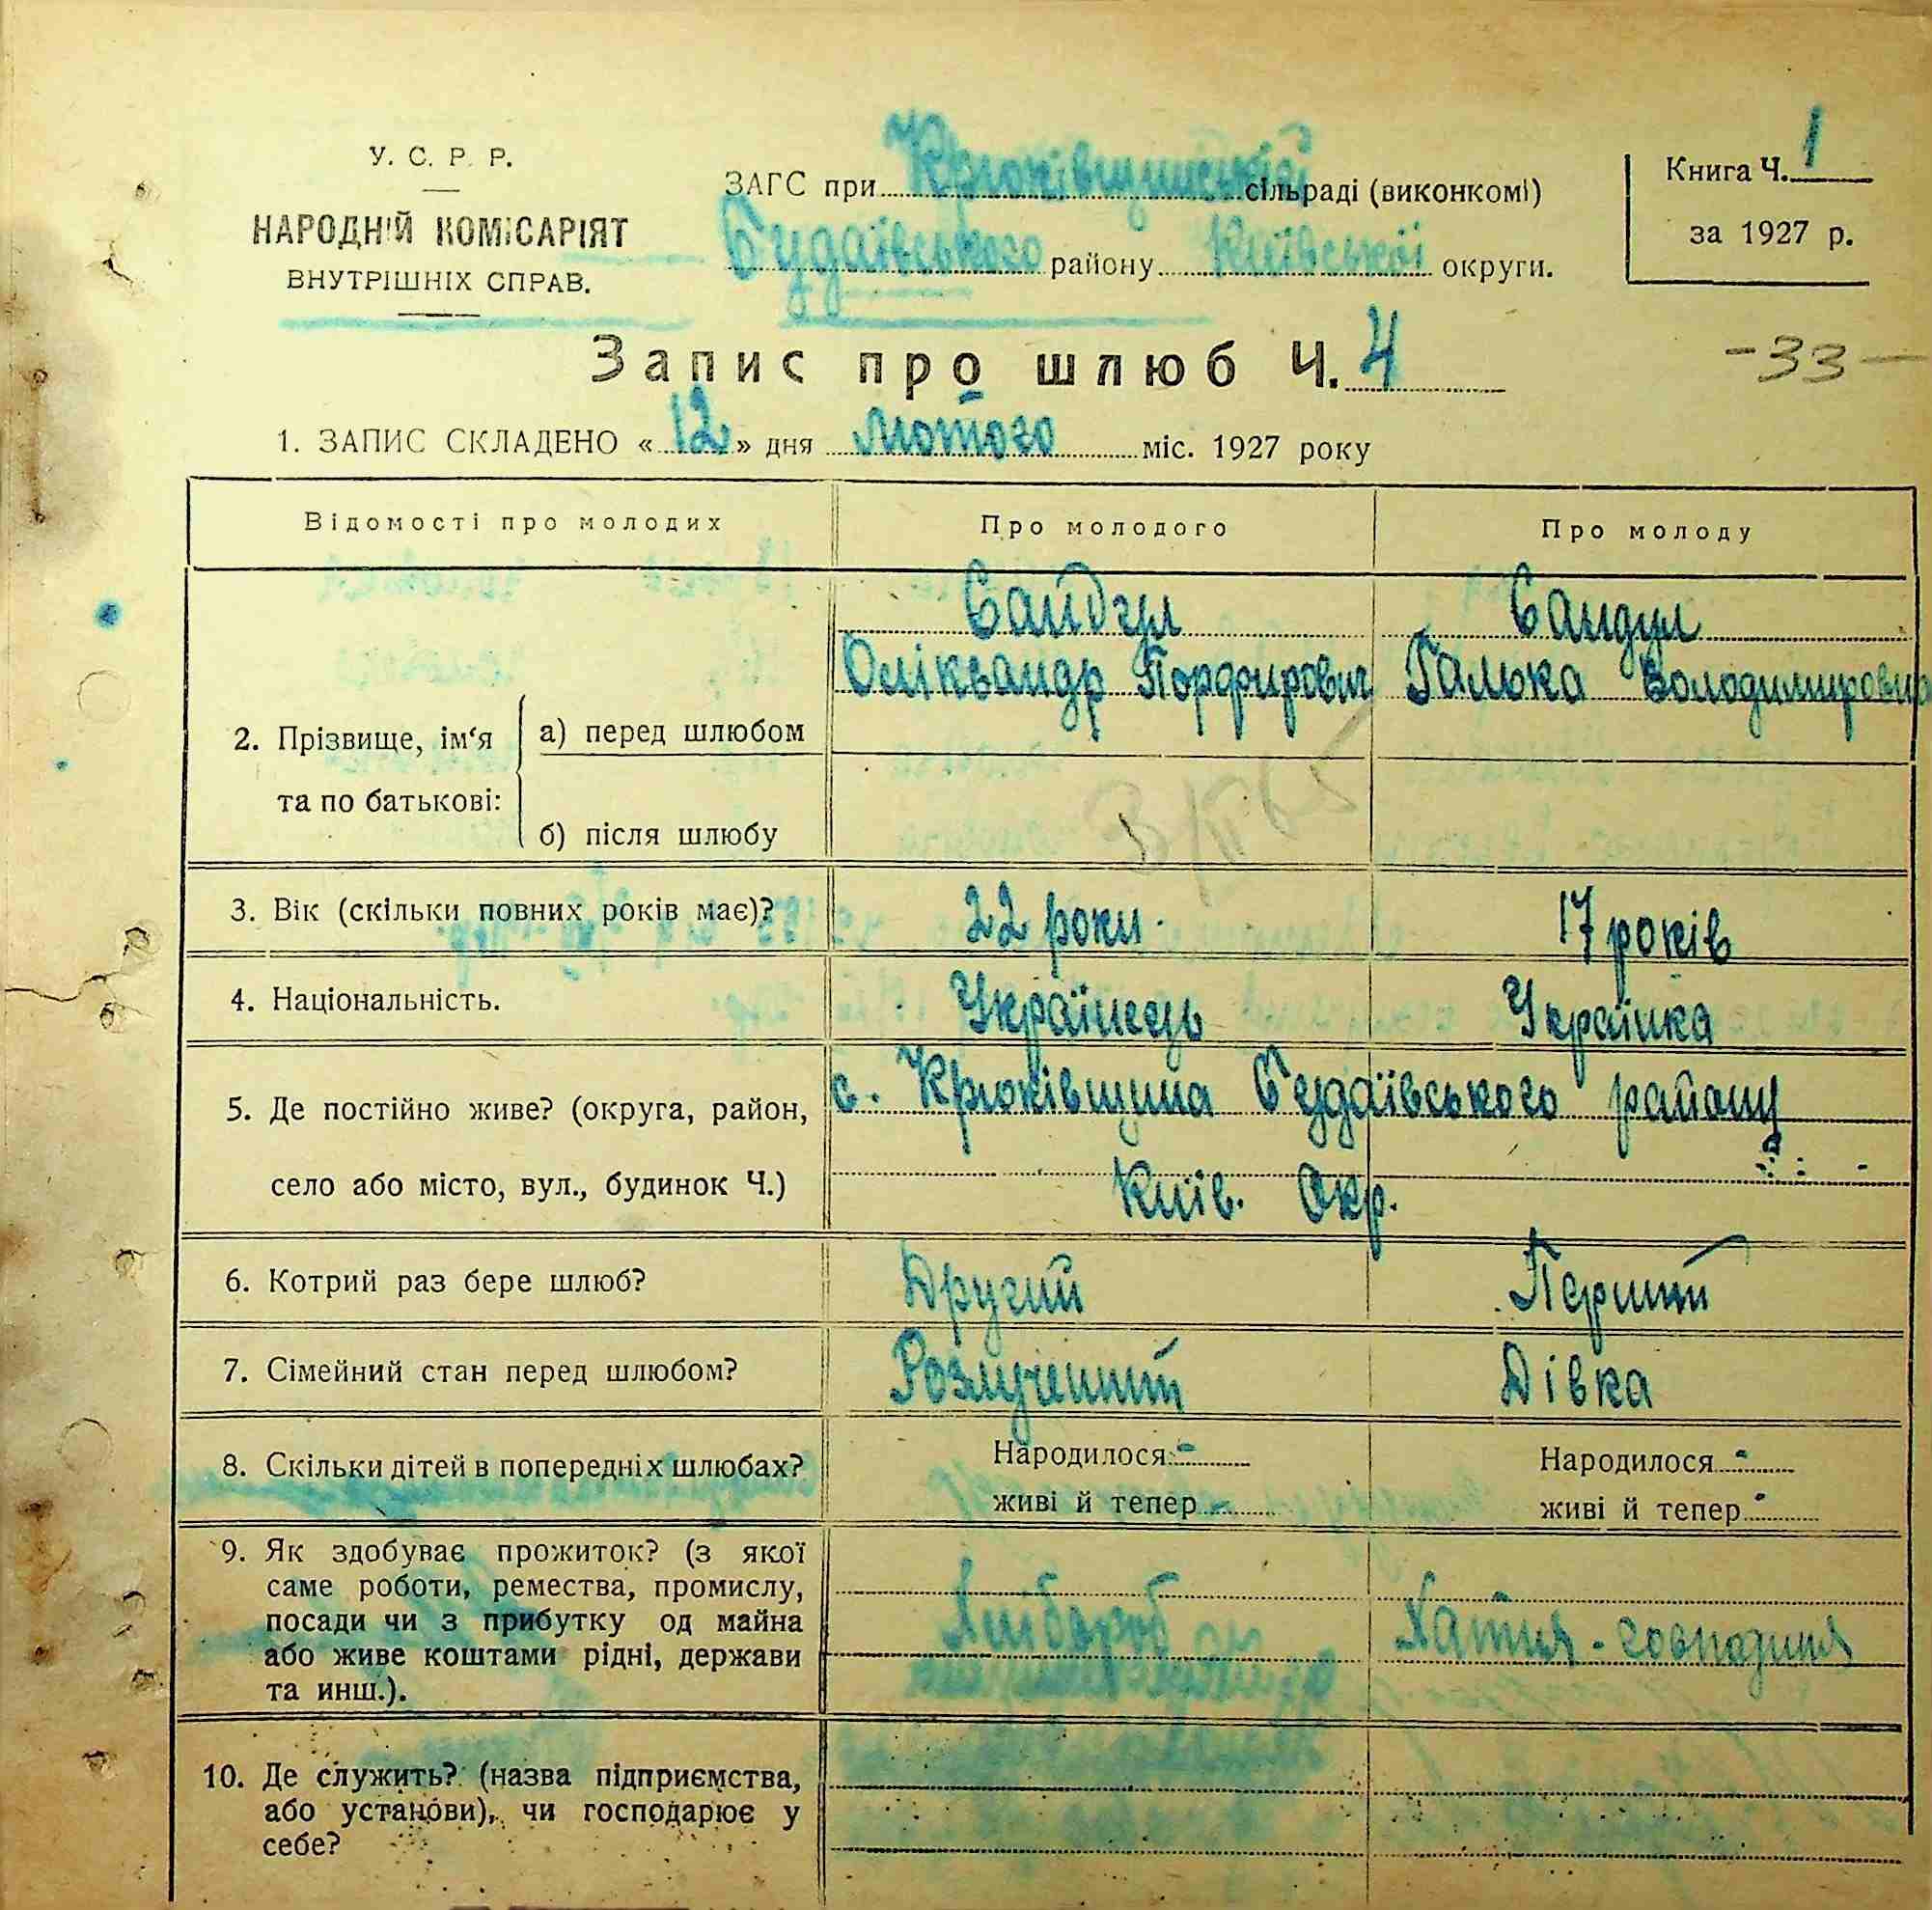 У. С. Р. Р.
НАРОДНІЙ КОМІСАРІЯТ
ВНУТРІШНІХ СПРАВ.
ЗАГС при Крюківщинській сільраді (виконкомі)
Будаївського району Київської округи.
Книга Ч. 1
за 1927 р.
Запис про шлюб Ч. 4
-33-
1. ЗАПИС СКЛАДЕНО « 12 » дня лютого міс. 1927 року
Відомості про молодих
Про молодого
Про молоду
2. Прізвище, ім‘я та по батькові:
а) перед шлюбом
Сандул
Сандул
Оліксандр Порфирович
Галька Володимировна
б) після шлюбу
3. Вік (скільки повних років має)?
22 роки.
17 років
4. Національність.
Українець
Українка
5. Де постійно живе? (округа, район,
село або місто, вул., будинок Ч.)
с. Крюківщина Будаївського району
Київ. Окр.
6. Котрий раз бере шлюб?
Другий
Перший
7. Сімейний стан перед шлюбом?
Розлучений
Дівка
8. Скільки дітей в попередніх шлюбах?
Народилося -
живі й тепер -
Народилося -
живі й тепер -
9. Як здобуває прожиток? (з якої
саме роботи, ремества, промислу,
посади чи з прибутку од майна
або живе коштами рідні, держави
та инш.).
Хлібороб
Хатня - господиня
10. Де служить? (назва підприємства,
або установи), чи господарює у
себе?